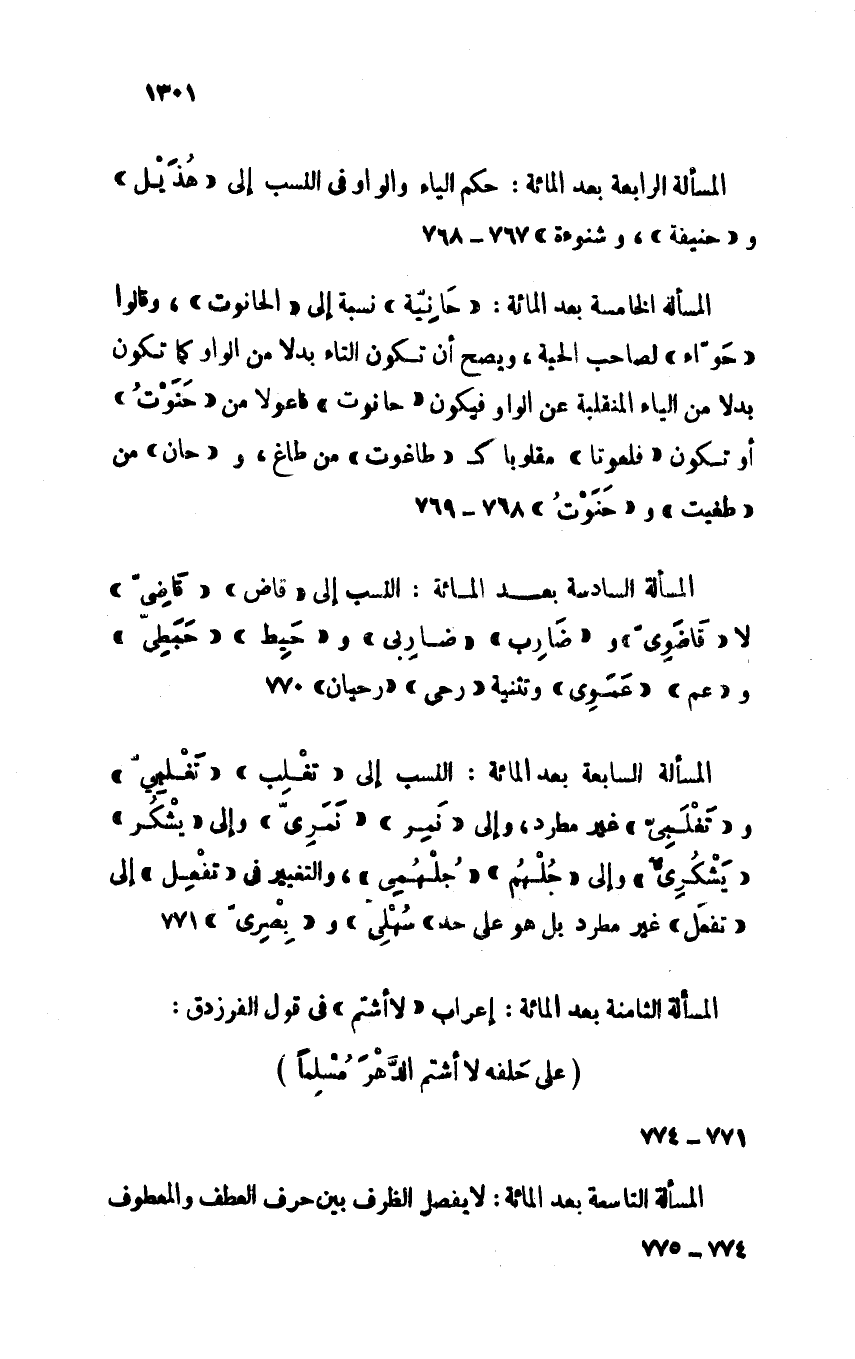 ١٣٠١
المسألة الرابعة بعد المائة : حكم الياء والواو فى النسب إلى « هُذَيْل »
و « حنيفة » ، و شنوءة » ٧٦٧ – ٧٦٨
المسألة الخامسة بعد المائة : « حَانِيّة » نسبة إلى « الحانوت » ، وقالوا
« حَوّاء » لصاحب الحية ، ويصح أن تكون التاء بدلا من الواو كما تكون
بدلا من الياء المنقلبة عن الواو فيكون « حانوت » فاعولا من « حَنَوْتُ »
أو تكون « فلعوتا » مقلوبا كـ « طاغوت » من طاغ ، و « حان » من
« طغيت » و « حَنَوْتُ » ٧٦٨ – ٧٦٩
المسألة السادسة بعد المائة : النسب إلى « قاض » « قَاضِىّ »
لا « قَاضَوِىّ » و « ضَارِب » « ضارِبى » و « حَبِط » « حَبَطِىّ »
و « عم » « عَمَوِى » وتثنية « رحى » « رحيان » ٧٧٠
المسألة السابعة بعد المائة : النسب إلى « تغْلِب » « تَغْلِبِيّ »
و « تَغْلَبِىّ » غير مطرد ، وإلى « نَمِر » « نَمَرِىّ » وإلى « يشْكُر »
« يَشْكُرِىّ » وإلى « جُلْهُم » « جُلْهُمِى » ، والتغيير فى « تفْعِل » إلى
« تفعَل » غير مطرد بل هو على حد « سُهْلِىّ » و « بِصْرِىّ » ٧٧١
المسألة الثامنة بعد المائة : إعراب « لا أشتم » فى قول الفرزدق :
( على حَلفه لا أشتم الدَّهْرَ مُسْلِماً )
٧٧١ – ٧٧٤
المسألة التاسعة بعد المائة : لا يفصل الظرف بين حرف العطف والمعطوف
٧٧٤ – ٧٧٥